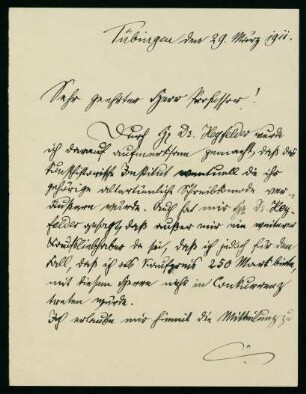 Tübingen den 29. März 1911.
Sehr geehrter Herr Professor!
Durch H. Dr. Heyfelder wurde
ich darauf aufmerksam gemacht, daß das
kunsthistorische Institut eventuell die ihr
gehörige altertümliche Schreibkommode ver-
äußern würde. Auch hat mir H. Dr. Hey-
felder gesagt, daß außer mir ein weiterer
Kaufliebhaber da sei, daß ich jedoch für den
Fall, daß ich als Kaufpreis 250 Mark biete,
mit diesem Herrn nicht in Concurrenz
treten würde.
Ich erlaube mir hiemit die Mitteilung zu